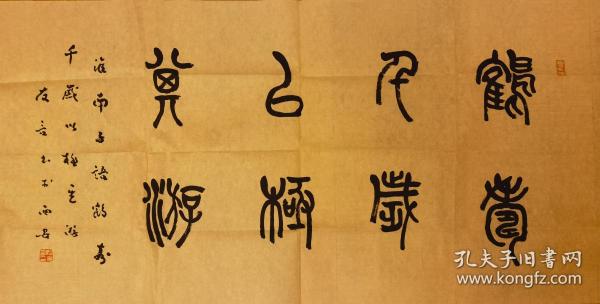 鶴壽
千歲
以極
其游
淮南子語鶴壽
千歲以極其游
友言書於西安
孔夫子旧书网
www.kongfz.com